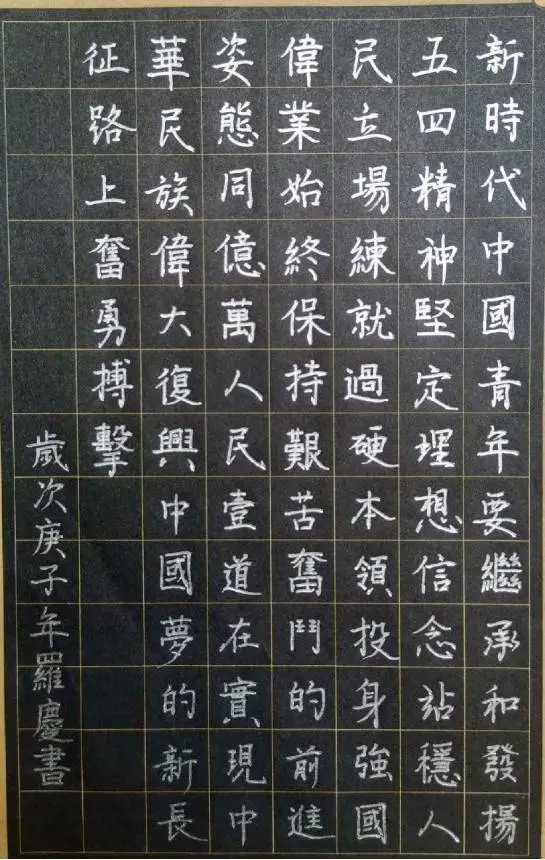 新時代中國青年要繼承和發揚
五四精神堅定理想信念站穩人
民立場練就過硬本領投身強國
偉業始終保持艱苦奮鬥的前進
姿態同億萬人民壹道在實現中
華民族偉大復興中國夢的新長
征路上奮勇搏擊
歲次庚子年羅慶書